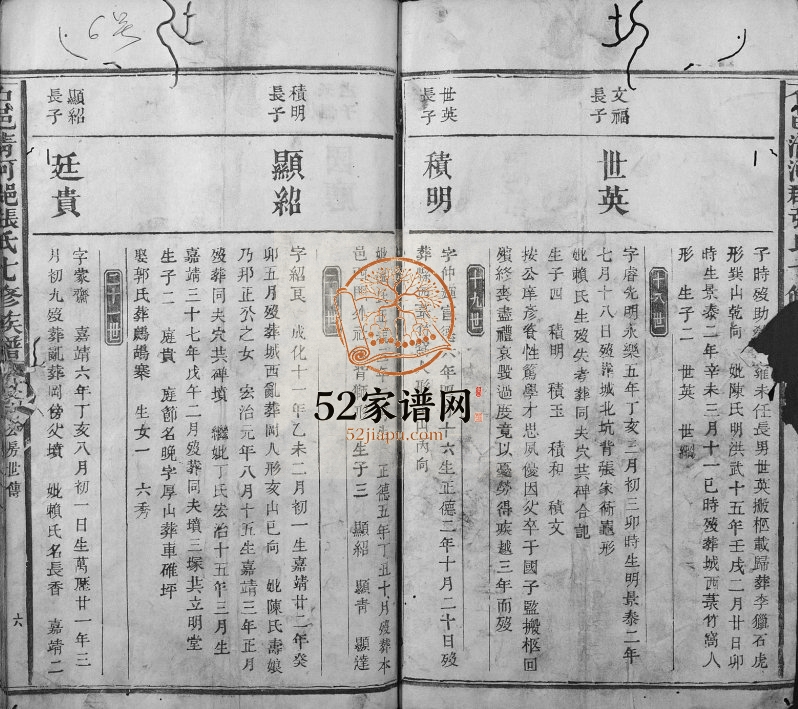 文福
長子
世英
子時歿助
雍未任長男世英搬柩載歸葬李獵石虎
形巽山乾向 妣陳氏明洪武十五年壬戌二月廿日卯
時生景泰二年辛未三月十一巳時歿葬城西葉竹窩人
形 生子二 世英 世綱
十八世
字廥先明永樂五年丁亥三月初三卯時生明景泰二年
七月十八日歿葬城北坑背張家衕龜形
妣賴氏生歿失考葬同夫穴共碑合記
生子四 積明 積玉 積和 積文
按公庠彥食性篤學才思夙優因父卒于國子監搬柩回
殯終喪盡禮哀毀過度竟以憂勞得疾越三年而歿
十九世
世英
長子
積明
字仲
十六生正德二年十月二十日歿
葬
內向
積明
長子
顯紹
正德五年丁丑十月歿葬本
邑
生子三 顯紹 顯青 顯達
二十世
字紹良 成化十一年乙未二月初一生嘉靖廿二年癸
卯五月歿葬城西亂葬岡人形亥山巳向 妣陳氏壽娘
乃邦正公之女 宏治元年八月十五生嘉靖三年正月
歿葬同夫穴共碑墳 繼妣丁氏宏治十五年三月生
嘉靖三十七年戊午二月歿葬同夫墳三塚共立明堂
生子二 廷貴 廷節名晚字厚山葬車碓坪
娶郭氏葬鷓鴣寨 生女一 六秀
二十一世
顯紹
長子
廷貴
字蒙齋 嘉靖六年丁亥八月初一日生萬歷廿一年三
月初九歿葬亂葬岡傍父墳 妣賴氏名長香 嘉靖二
邑清河郡張氏七修族譜
房世傳
六
52家谱网
52jiapu.com